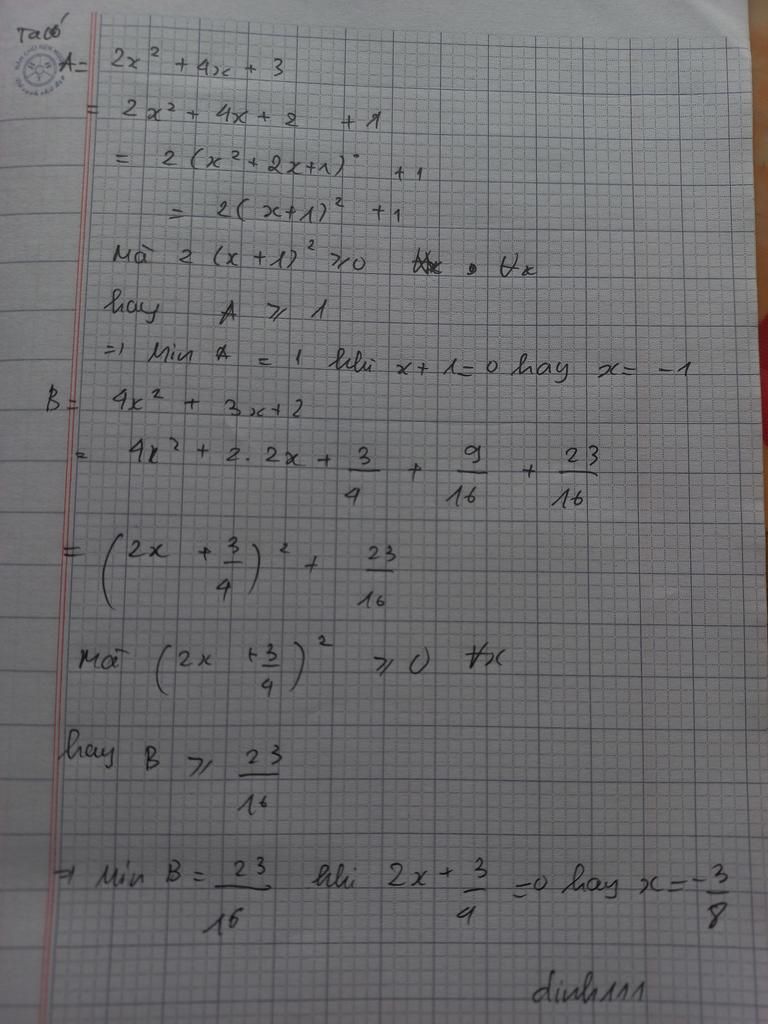 Ta có
A = 2x² + 4x + 3
= 2x² + 4x + 2 + 1
= 2(x² + 2x + 1) + 1
= 2(x+1)² + 1
Mà 2(x+1)² ≥ 0 ∀x
hay A ≥ 1
=> Min A = 1 khi x + 1 = 0 hay x = -1
B = 4x² + 3x + 2
= 4x² + 2. 2x + 3/4 + 9/16 + 23/16
= (2x + 3/4)² + 23/16
Mà (2x + 3/4)² ≥ 0 ∀x
hay B ≥ 23/16
=> Min B = 23/16 khi 2x + 3/4 = 0 hay x = -3/8
dinh111